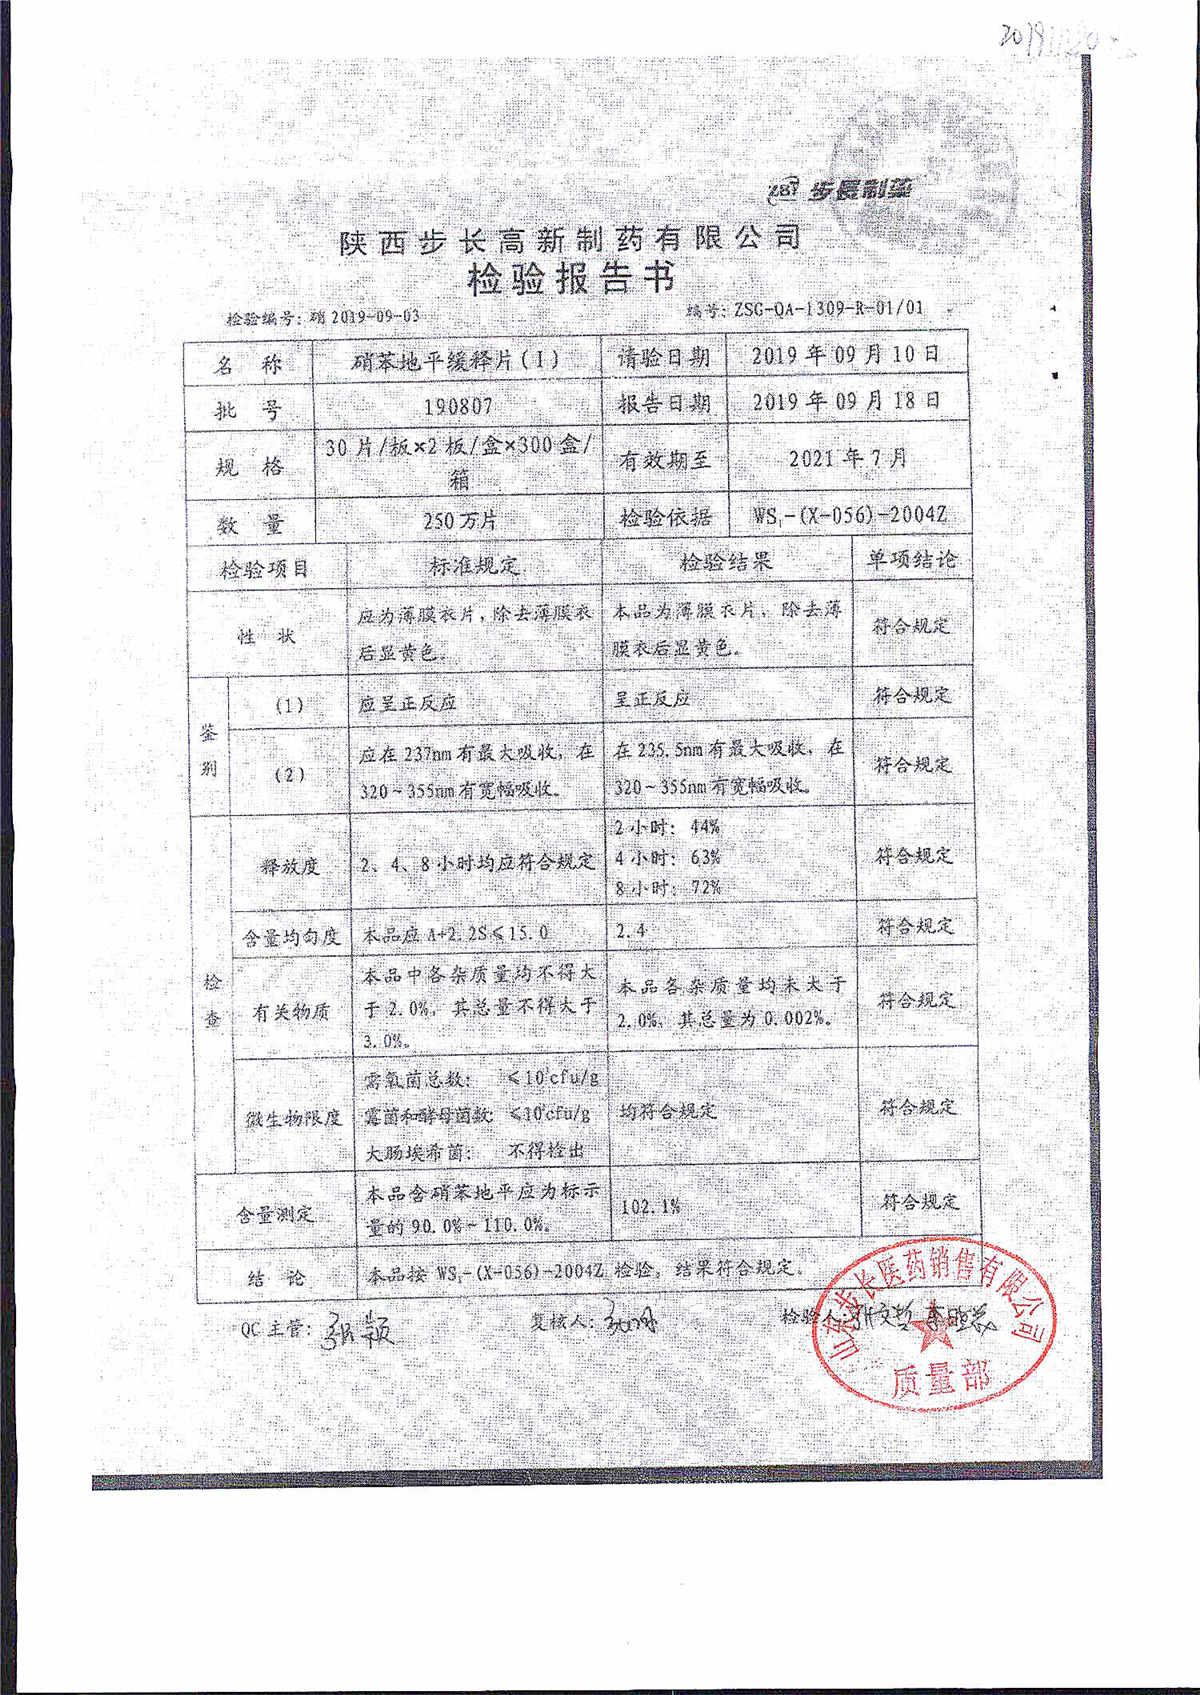 步长制药
陕西步长高新制药有限公司
检验报告书
检验编号：硝 2019-09-03
编号：ZSG-QA-1309-R-01/01
名 称 硝苯地平缓释片(I) 请验日期 2019 年 09 月 10 日
批 号 190807 报告日期 2019 年 09 月 18 日
规 格 30 片/板×2 板/盒×300 盒/
箱
有效期至 2021 年 7 月
数 量 250 万片 检验依据 WS₁-(X-056)-2004Z
检验项目 标准规定 检验结果 单项结论
性 状
应为薄膜衣片，除去薄膜衣
后显黄色。
本品为薄膜衣片，除去薄
膜衣后显黄色。
符合规定
鉴别
(1) 应呈正反应 呈正反应 符合规定
(2)
应在 237nm 有最大吸收，在
320～355nm 有宽幅吸收。
在 235.5nm 有最大吸收，在
320～355nm 有宽幅吸收。
符合规定
检查
释放度 2、4、8 小时均应符合规定
2 小时：44%
4 小时：63%
8 小时：72%
符合规定
含量均匀度 本品应 A+2.2S≤15.0 2.4 符合规定
有关物质
本品中各杂质量均不得大
于 2.0%，其总量不得大于
3.0%。
本品各杂质量均未大于
2.0%，其总量为 0.002%。
符合规定
微生物限度
需氧菌总数： ≤10³cfu/g
霉菌和酵母菌数：≤10²cfu/g
大肠埃希菌： 不得检出
均符合规定
符合规定
含量测定
本品含硝苯地平应为标示
量的 90.0%～110.0%。
102.1%
符合规定
结 论 本品按 WS₁-(X-056)-2004Z 检验，结果符合规定。
QC 主管：张颖
复核人：
检验人：
山东步长医药销售有限公司
质量部